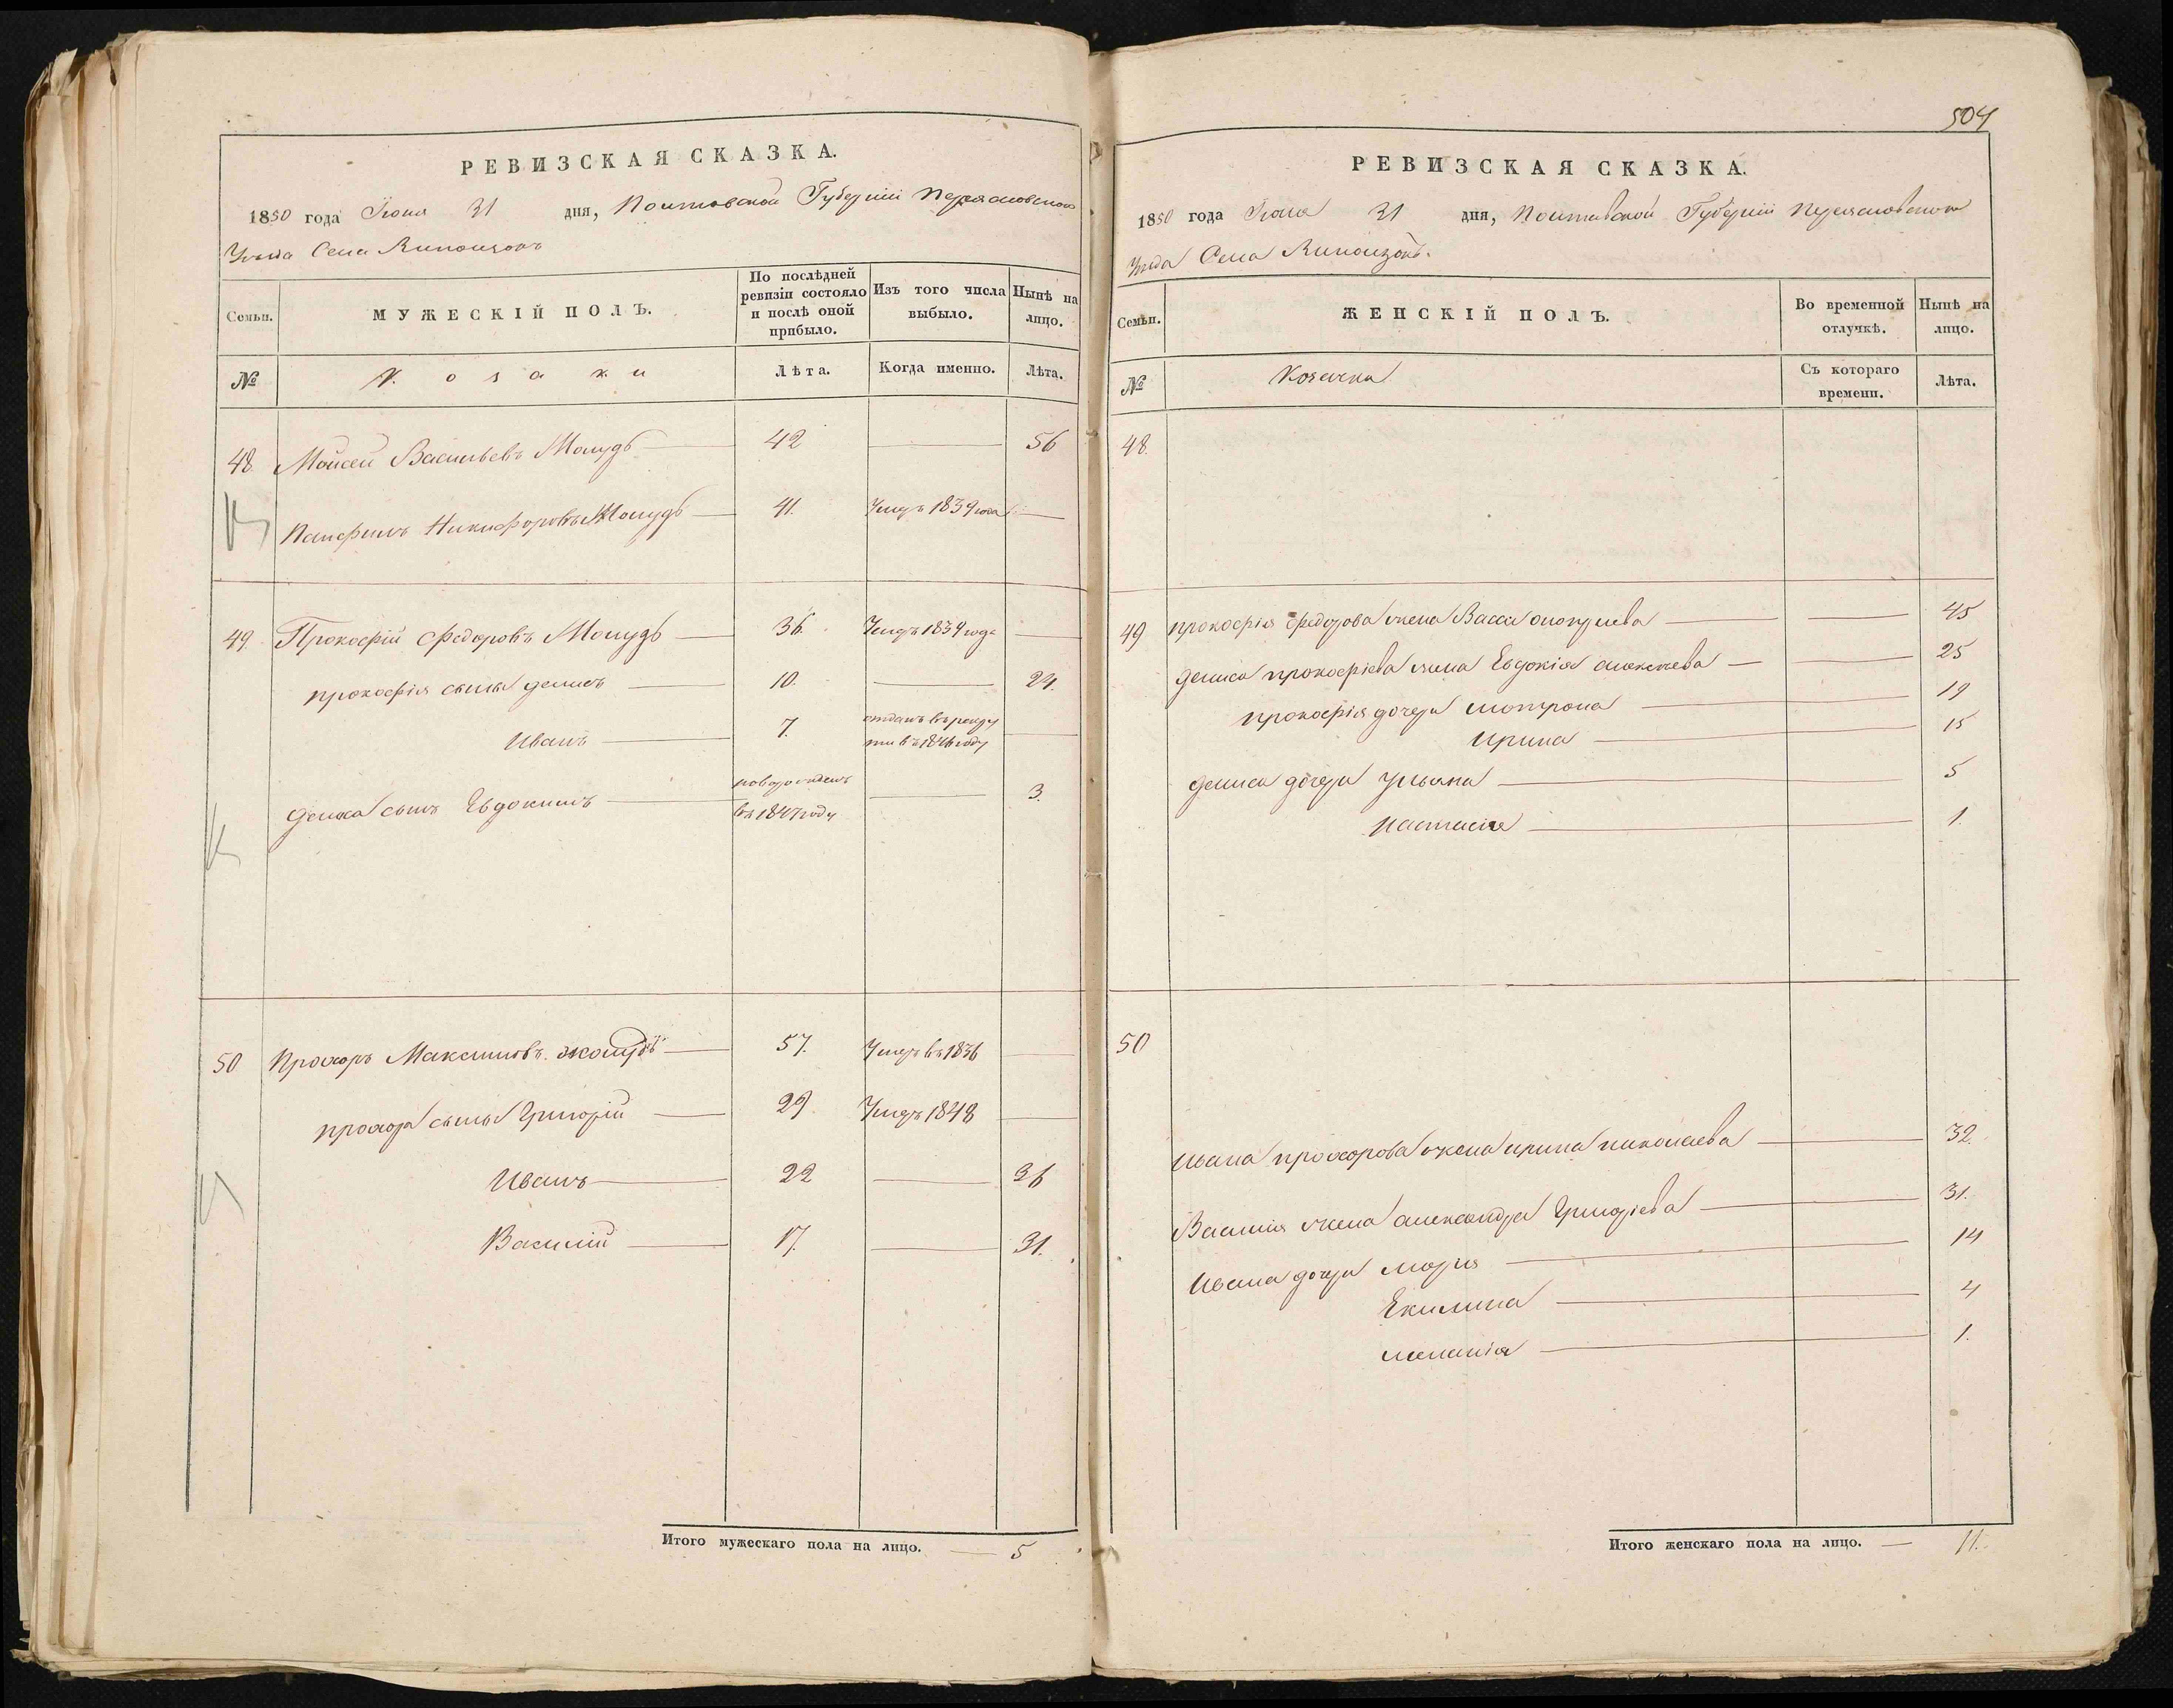 504
РЕВИЗСКАЯ СКАЗКА.
1850 года Іюля 31 дня, Полтавской Губерніи Переяславского
Уезда Села Липлявъ
Семьи. МУЖЕСКІЙ ПОЛЪ. По послѣдней ревизіи состояло и послѣ оной прибыло. Изъ того числа выбыло. Нынѣ на лицо.
№ Козаки Лѣта. Когда именно. Лѣта.
48. Мойсей Васильевъ 42 56
Панфилъ Никифоровъ 41. Умеръ 1839 года
49. Прокофій Федоровъ 36. Умеръ 1834 года
прокофія сыны денисъ 10. 24.
Иванъ 7. отданъ въ рекру
ты въ 1846 году
дениса сынъ Евдокимъ новорожденъ 3.
въ 1847 году
50 Прохоръ Максимовъ 57. Умеръ въ 1836
прохора сыны Григорій 29. Умеръ 1848
Иванъ 22 36
Василій 17. 31.
Итого мужескаго пола на лицо. 5
РЕВИЗСКАЯ СКАЗКА.
1850 года Іюля 31 дня, Полтавской Губерніи Переяславского
Уезда Села
Семьи. ЖЕНСКІЙ ПОЛЪ. Во временной отлучкѣ. Нынѣ на лицо.
№ Козачки Съ котораго времени. Лѣта.
48.
49 прокофія Федорова жена Васса 45
дениса прокофіева жена Евдокія алексеева 25
прокофія дочери мотрона 19
ирина 15
дениса дочери ульяна 5
настасія 1.
50
Ивана прохорова жена ирина николаева 32.
Василія жена александра Григоріева 31.
Ивана дочери марія 14
Екилина 4
меланія 1.
Итого женскаго пола на лицо. 11.